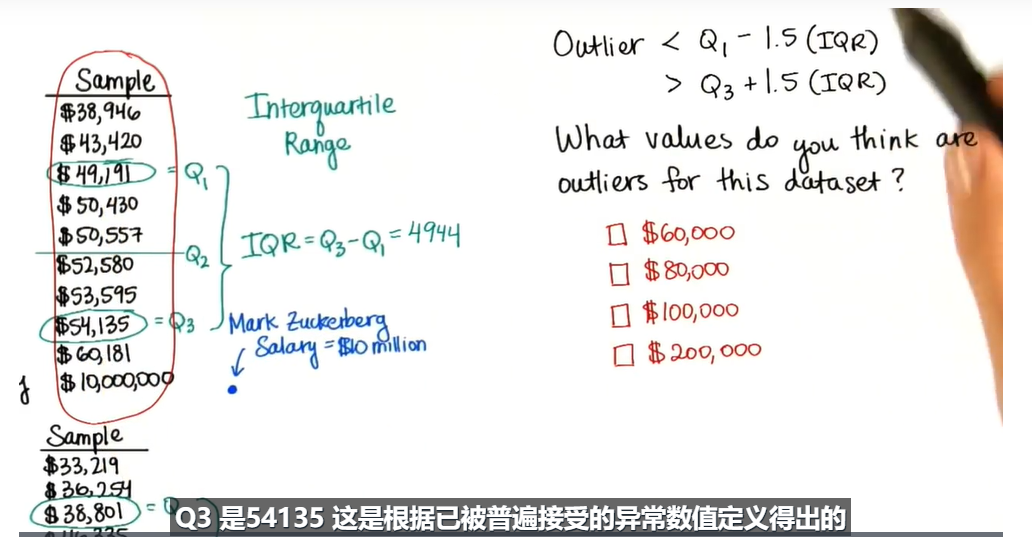 Sample
$38,946
$43,420
$49,191 = Q1
$50,430
$50,557
Q2
$52,580
$53,595
$54,135 = Q3
$60,181
$10,000,000
Interquartile
Range
IQR = Q3 - Q1 = 4944
Mark Zuckerberg
Salary = $10 million
Outlier < Q1 - 1.5 (IQR)
> Q3 + 1.5 (IQR)
What values do you think are
outliers for this dataset?
$60,000
$80,000
$100,000
$200,000
Sample
$33,219
$36,254
$38,801 =
Q3 是54135 这是根据已被普遍接受的异常数值定义得出的